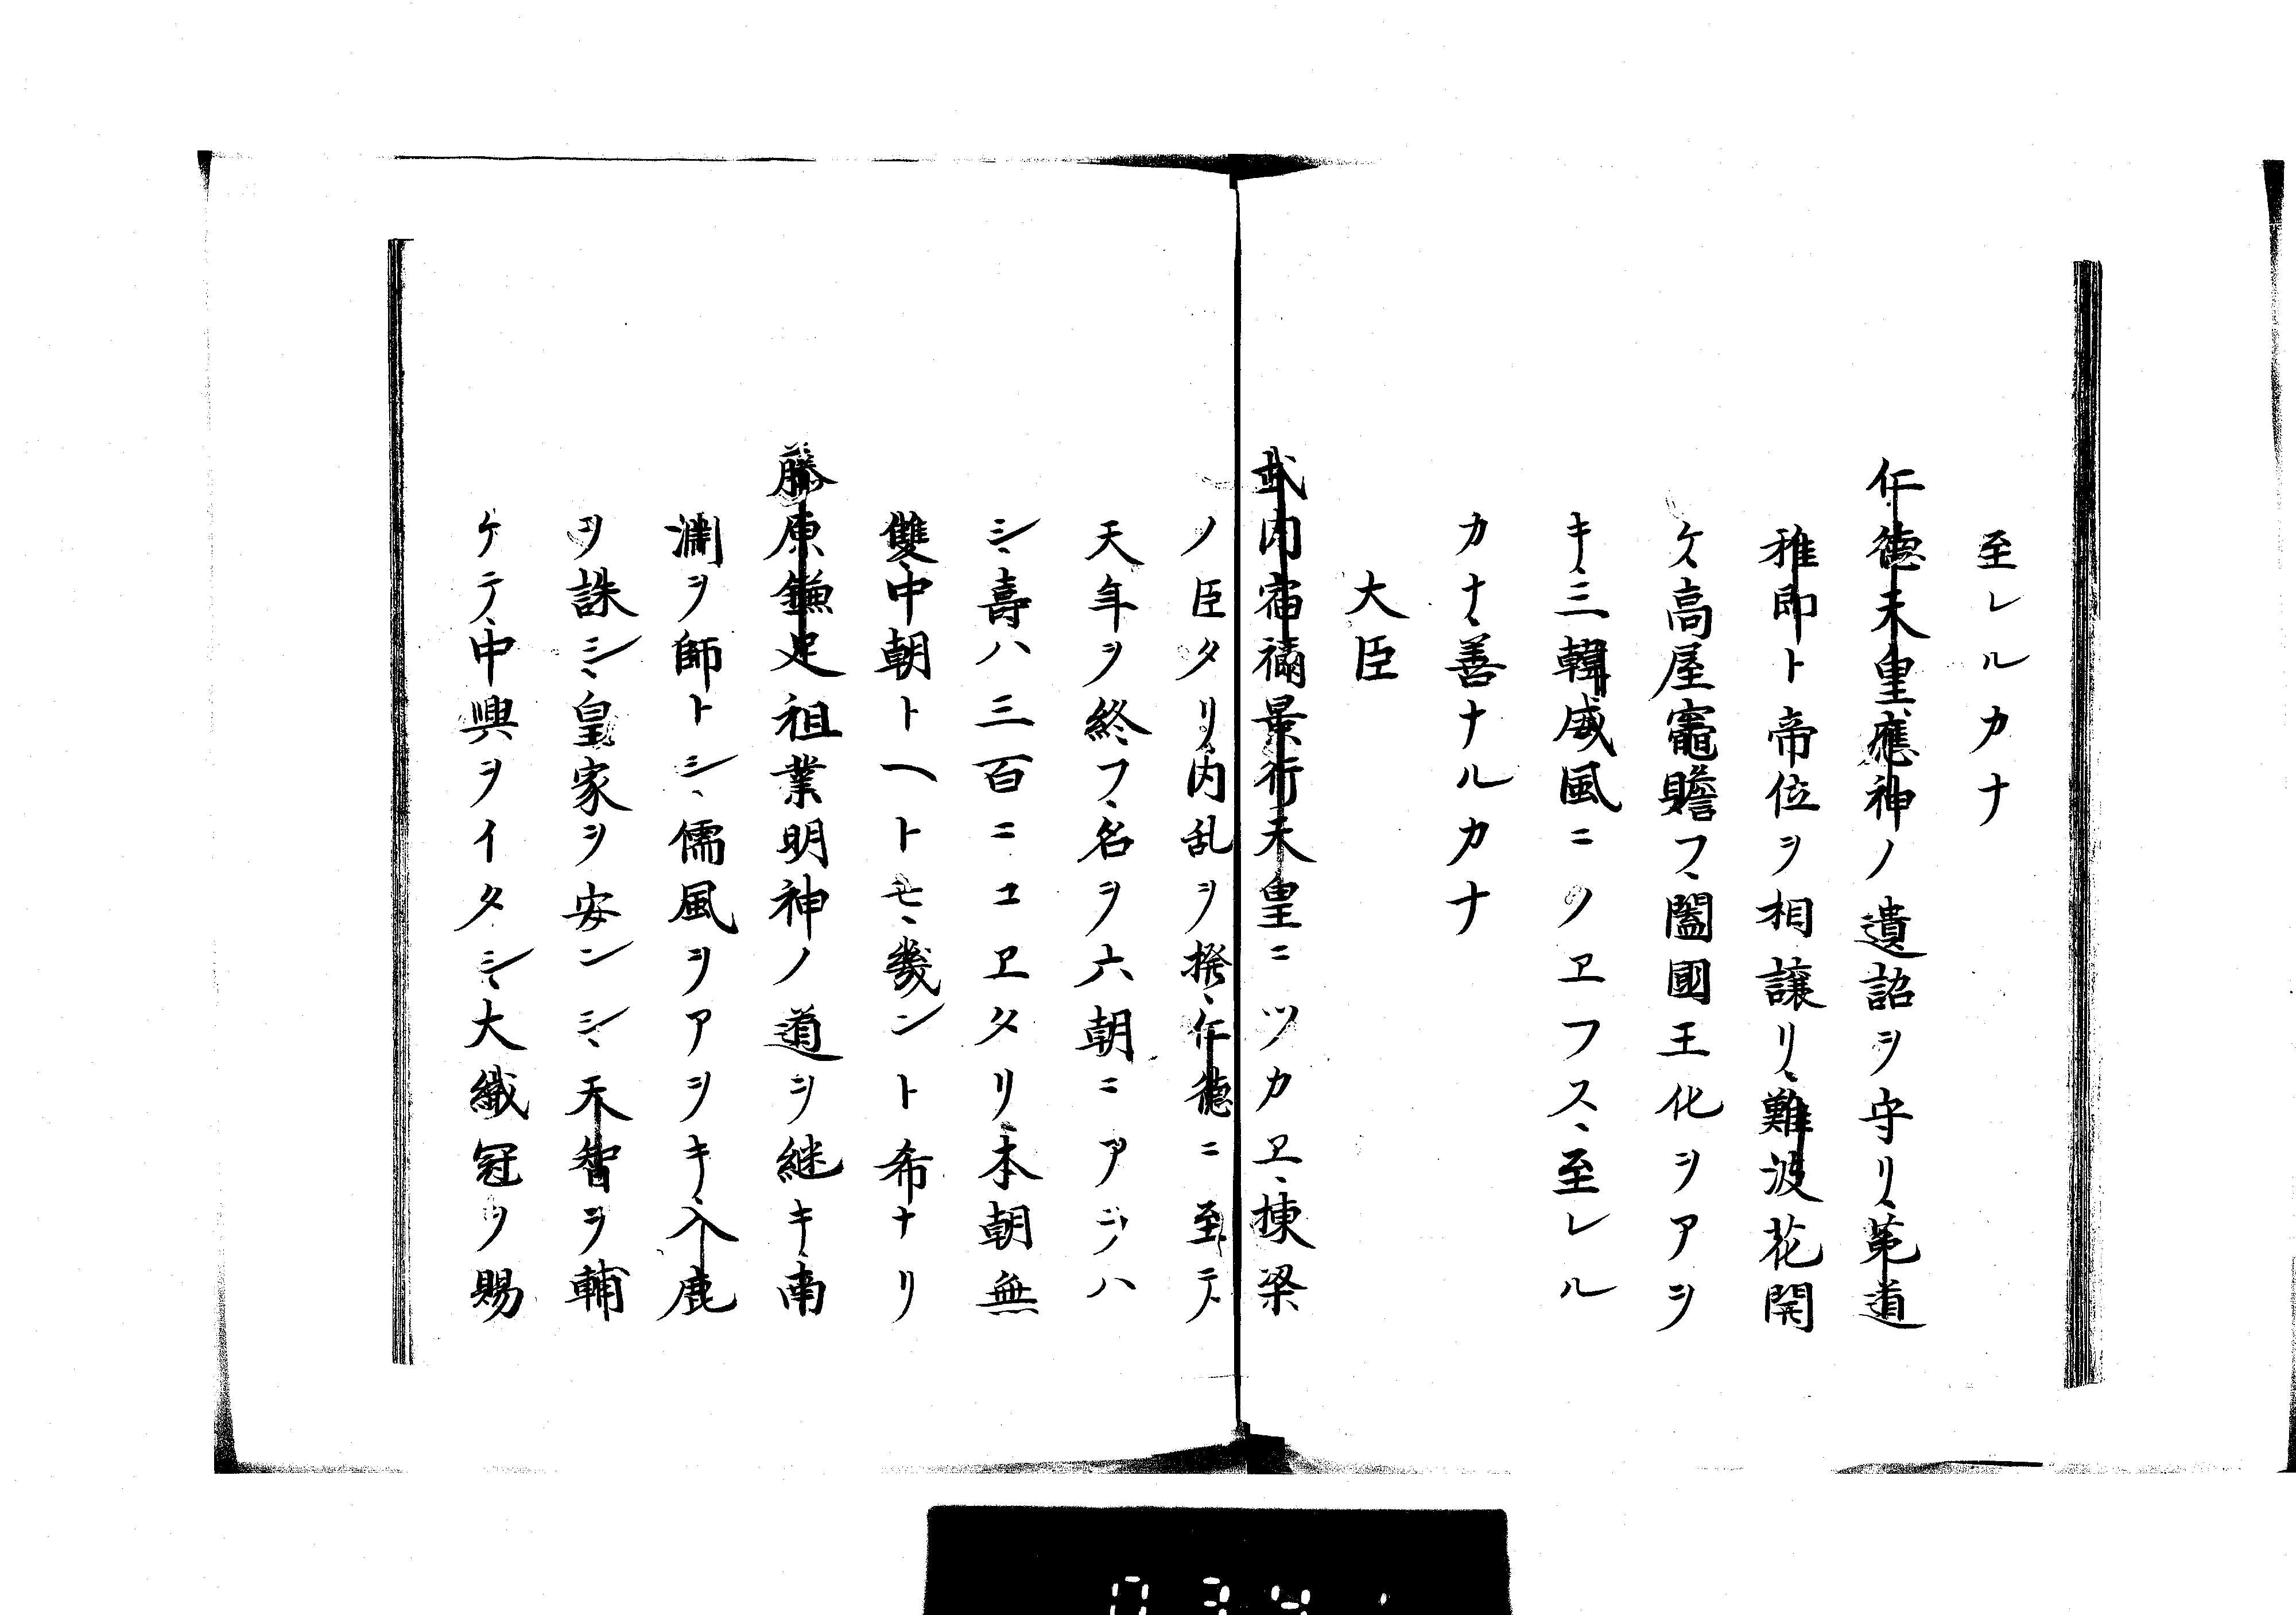 至レルカナ
仁德天皇應神ノ遺詔ヲ守リ、菟道
稚郎ト帝位ヲ相讓リ、難波花開
ケ、高屋竈贍フ、闔國王化ヲアヲ
キ、三韓威風ニノヱフス、至レル
カナ、善ナルカナ
大臣
武内宿禰景行天皇ニツカヱ、棟梁
ノ臣タリ、内乱ヲ撥、仁德ニ至テ、
天年ヲ終フ、名ヲ六朝ニアラハ
シ、壽ハ三百ニコヱタリ、本朝無
雙、中朝トヘトモ、幾ント希ナリ
藤原鎌足祖業明神ノ道ヲ継キ、南
淵ヲ師トシ、儒風ヲアヲキ、入鹿
ヲ誅シ、皇家ヲ安ンシ、天智ヲ輔
ケテ、中興ヲイタシ、大織冠ヲ賜
034